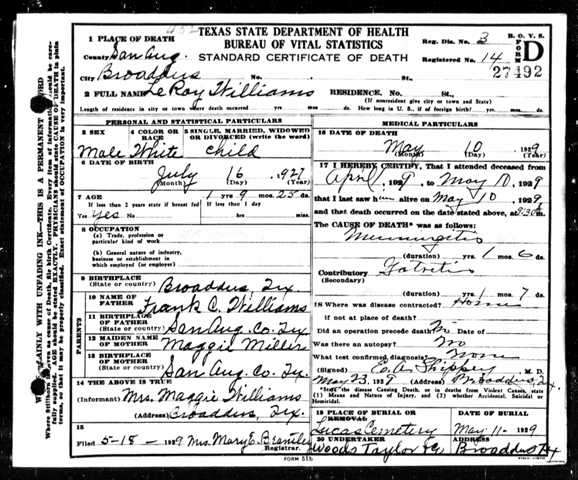 TEXAS STATE DEPARTMENT OF HEALTH
BUREAU OF VITAL STATISTICS
STANDARD CERTIFICATE OF DEATH
B. O. V. S.
FORM D
Reg. Dis. No. 3
Registered No. 14
27492
1 PLACE OF DEATH
County San Aug.
City Broaddus No. St.,
2 FULL NAME LeRoy Williams RESIDENCE. No. St.,
(If nonresident give city or town and State)
Length of residence in city or town where death occurred yrs. mos. ds. How long in U. S., if of foreign birth? yrs. mos. ds.
PERSONAL AND STATISTICAL PARTICULARS
3 SEX
4 COLOR OR RACE
5 SINGLE, MARRIED, WIDOWED OR DIVORCED (write the word)
Male White Child
6 DATE OF BIRTH
July 16 1927
(Month) (Day) (Year)
7 AGE 1 yrs. 9 mos. 25 ds.
If less than 2 years state if breast fed If less than 1 day
Yes No hrs. min.
8 OCCUPATION
(a) Trade, profession or particular kind of work
(b) General nature of industry, business or establishment in which employed (or employer)
9 BIRTHPLACE
(State or country) Broaddus, Tex.
PARENTS
10 NAME OF FATHER Frank C. Williams
11 BIRTHPLACE OF FATHER
(State or country) San Aug. Co. Tex
12 MAIDEN NAME OF MOTHER Maggie Miller
13 BIRTHPLACE OF MOTHER
(State or country) San Aug. Co. Tex.
14 THE ABOVE IS TRUE
(Informant) Mrs. Maggie Williams
(Address) Broaddus, Tex.
15
Filed 5-18- 1929 Mrs. Mary E. Brantley
Registrar.
MEDICAL PARTICULARS
16 DATE OF DEATH
May 10 1929
(Month) (Day) (Year)
17 I HEREBY CERTIFY, That I attended deceased from
April 1, 1929, to May 10, 1929
that I last saw him alive on May 10 1929
and that death occurred on the date stated above, at 9:30 m.
The CAUSE OF DEATH* was as follows:
(duration) yrs. 1 mos. 6 ds.
Contributory
(Secondary)
(duration) yrs. 1 mos. 7 ds.
18 Where was disease contracted? Home
if not at place of death?
Did an operation precede death? No Date of
Was there an autopsy? No
What test confirmed diagnosis? None
(Signed) M. D.
May 23, 1929 (Address) Broaddus, Tex.
19 PLACE OF BURIAL OR REMOVAL
DATE OF BURIAL
Lucas Cemetery May 11- 1929
20 UNDERTAKER
ADDRESS
Woods Taylor Broaddus Tex
FORM 515